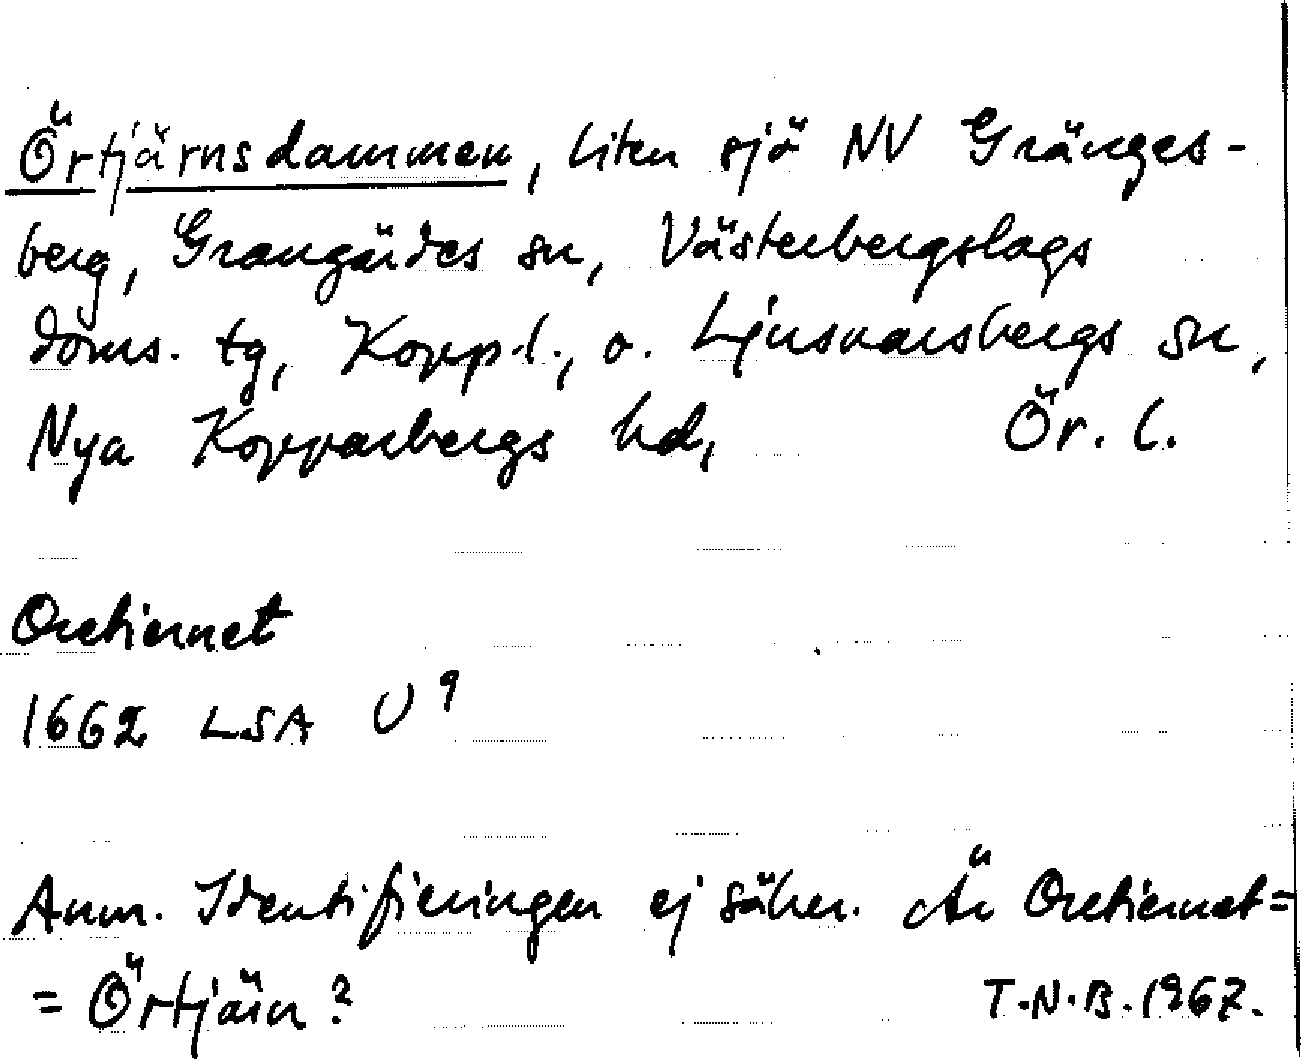 Örtjärnsdammen, liten sjö NV Gränges-
berg, Grangärdes sn, Västerbergslags
doms. tg, Kopp.l., o. Ljusnarsbergs sn,
Nya Kopparbergs hd, Ör. l.
Oretiernet
1662 LSA U⁹
Anm. Identifieringen ej säker. Är Oretiernet =
= Örtjärn?
T.N.B. 1967.